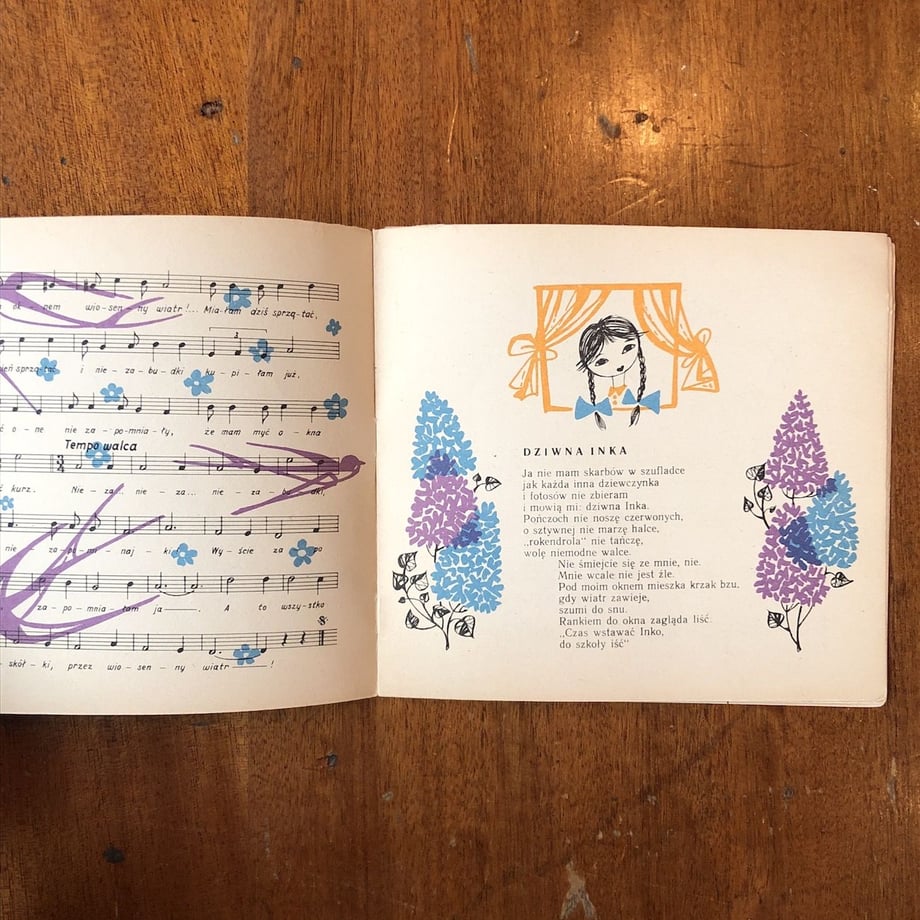 nem wio-sen-ny wiatr!... Mia-łam dziś sprzą-tać,
sprzą-tać i nie-za-bu-dki ku-pi-łam już,
o-ne nie za-po-mnia-ły, że mam myć o-kna
Tempo walca
kurz. Nie-za... nie-za... nie-za-bu-dki,
nie za-po-mi-naj-ki! Wy-ście za po
za-po-mnia-łam ja. A to wszy-stko
skół-ki, przez wio-sen-ny wiatr!
DZIWNA INKA
Ja nie mam skarbów w szufladce
jak każda inna dziewczynka
i fotosów nie zbieram
i mówią mi: dziwna Inka.
Pończoch nie noszę czerwonych,
o sztywnej nie marzę halce,
„rokendrola" nie tańczę,
wolę niemodne walce.
Nie śmiejcie się ze mnie, nie.
Mnie wcale nie jest źle.
Pod moim oknem mieszka krzak bzu.
gdy wiatr zawieje,
szumi do snu.
Rankiem do okna zagląda liść.
„Czas wstawać Inko,
do szkoły iść"